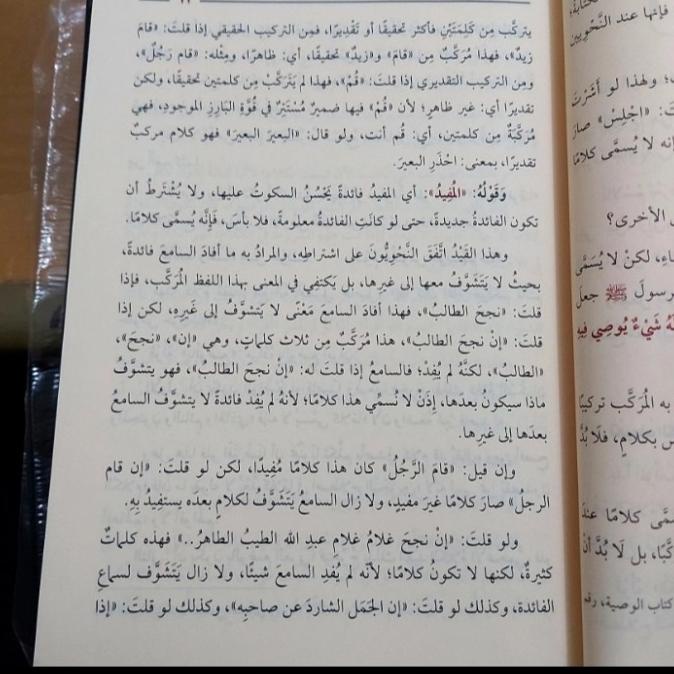 يتركَّب مِن كَلِمَتَيْنِ فأكثر تحقيقًا أو تَقْدِيرًا، فمِن التركيب الحقيقي إذا قلتَ: «قامَ
زيدٌ»، فهذا مُرَكَّبٌ مِن «قامَ» و«زيدٌ» تحقيقًا، أي: ظاهرًا، ومِثله: «قام رَجُلٌ»،
ومِن التركيب التقديري إذا قلتَ: «قُمْ»، فهذا لم يَتَرَكَّبْ مِن كلمتين تحقيقًا، ولكن
تقديرًا أي: غير ظاهرٍ؛ لأن «قُمْ» فيها ضميرٌ مُسْتَتِرٌ في قُوَّةِ البَارِزِ الموجودِ، فهي
مُرَكَّبَةٌ مِن كلمتين، أي: قُم أنت، ولو قال: «البعيرَ البعيرَ» فهو كلام مركبٌ
تقديرًا، بمعنى: احْذَرِ البعيرَ.
وَقَوْلُهُ: «المُفِيدُ»: أي المفيدُ فائدةً يَحْسُنُ السكوتُ عليها، ولا يُشْتَرطُ أن
تكون الفائدةُ جديدةً، حتى لو كانَتِ الفائدةُ معلومةً، فلا بأسَ، فَإِنَّه يُسمَّى كلامًا.
وهذا القَيْدُ اتَّفَقَ النَّحْوِيُّونَ على اشتراطِهِ، والمرادُ به ما أفادَ السامعَ فائدةً،
بحيثُ لا يَتَشَوَّفُ معها إلى غيرِها، بل يَكتفِي في المعنى بهذا اللفظِ المُرَكَّبِ، فإذا
قلتَ: «نجحَ الطالبُ»، فهذا أفادَ السامعَ مَعْنًى لا يَتشوَّفُ إلى غَيرِهِ، لكن إذا
قلتَ: «إنْ نجحَ الطالبُ»، هذا مُرَكَّبٌ مِن ثلاث كلماتٍ، وهي «إن»، «نجحَ»،
«الطالبُ»، لكنَّهُ لم يُفِدْ؛ فالسامعُ إذا قلتَ له: «إنْ نجحَ الطالبُ»، فهو يتشوَّفُ
ماذا سيكونُ بعدَها، إِذَنْ لا نُسمِّي هذا كلامًا؛ لأنهُ لم يُفِدْ فائدةً لا يتشوَّفُ السامعُ
بعدَها إلى غيرِها.
وإن قيل: «قامَ الرَّجُلُ» كان هذا كلامًا مُفِيدًا، لكن لو قلتَ: «إن قام
الرجلُ» صارَ كلامًا غيرَ مفيدٍ، ولا زال السامعُ يَتَشَوَّفُ لكلامٍ بعدَه يستفِيدُ بِهِ.
ولو قلتَ: «إنْ نجحَ غلامُ غلامِ عبدِ الله الطيبُ الطاهرُ..» فهذه كلماتٌ
كثيرةٌ، لكنها لا تكونُ كلامًا؛ لأنَّه لم يُفدِ السامعَ شيئًا، ولا زال يَتَشَوَّف لسماعِ
الفائدة، وكذلك لو قلتَ: «إن الجَمَل الشاردَ عن صاحبِه»، وكذلك لو قلتَ: «إذا
فإنها عند النَّحْوِيين
؛ ولهذا لو أَشَرْتَ
تَ: «اجْلِسْ» صارَ
إنه لا يُسمَّى كلامًا
الأخرى؟
اءِ، لكنْ لا يُسَمَّى
لرسولَ ﷺ جعلَ
لَهُ شَيْءٌ يُوصِي فِيهِ
به المُرَكَّب تركيبًا
س بكلامٍ، فلا بُدَّ
سمَّى كلامًا عندَ
كَّبًا، بل لَا بُدَّ أنْ
كتاب الوصية، رقم